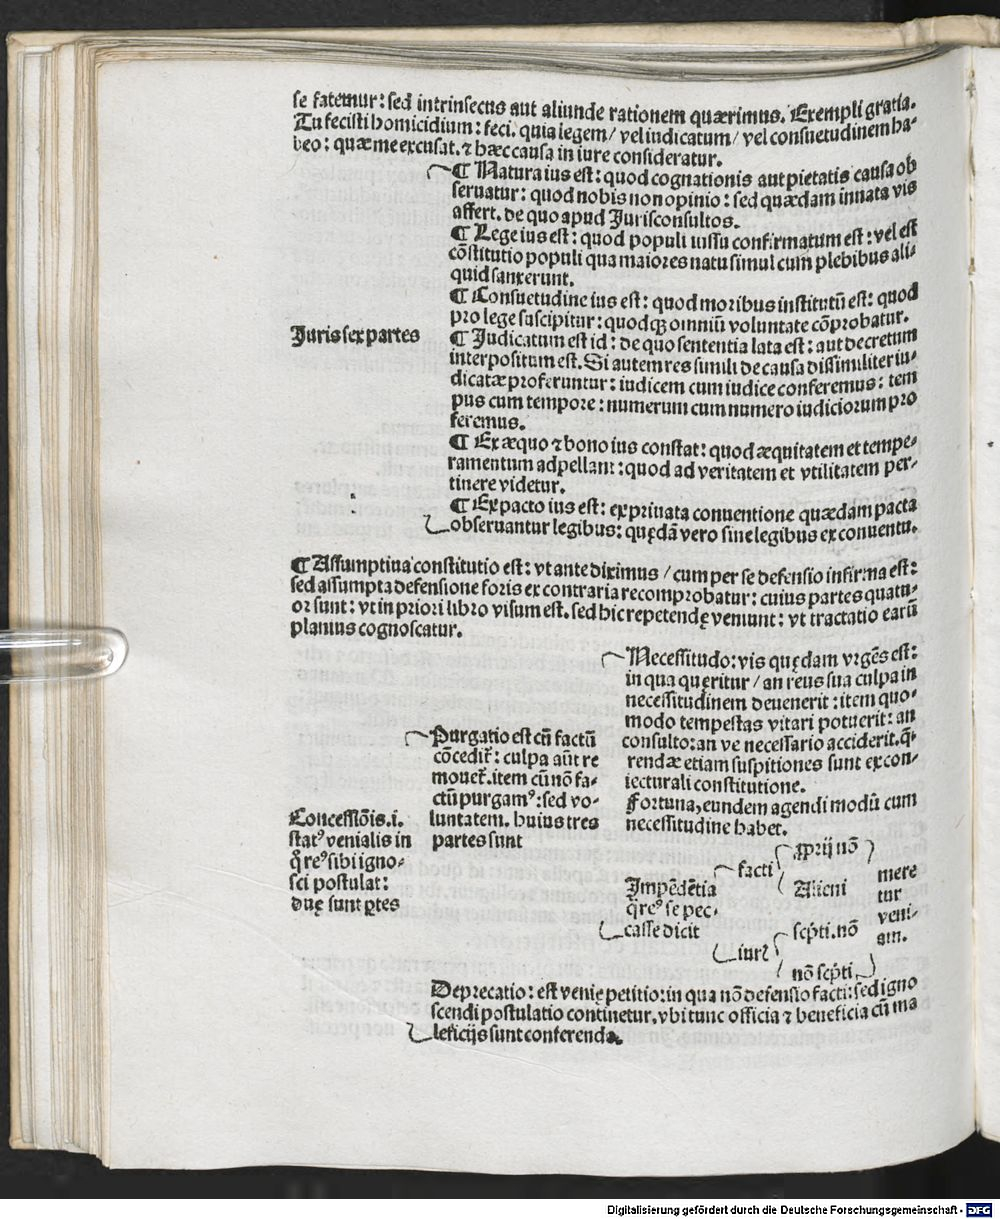 se fatemur: sed intrinsecus aut aliunde rationem quærimus. Exempli gratia.
Tu fecisti homicidium: feci. quia legem / vel iudicatum / vel consuetudinem ha-
beo: quæ me excusat. ⁊ hæc causa in iure consideratur.
¶ Natura ius est: quod cognationis aut pietatis causa ob
seruatur: quod nobis non opinio: sed quædam innata vis
affert. de quo apud Jurisconsultos.
¶ Lege ius est: quod populi iussu confirmatum est: vel est
cõstitutio populi qua maiores natu simul cum plebibus ali-
quid sanxerunt.
¶ Consuetudine ius est: quod moribus institutũ est: quod
pro lege suscipitur: quodqꝫ omniũ voluntate cõprobatur.
Juris sex partes
¶ Judicatum est id: de quo sententia lata est: aut decretum
interpositum est. Si autem res simili de causa dissimiliter iu-
dicatæ proferuntur: iudicem cum iudice conferemus: tem
pus cum tempore: numerum cum numero iudiciorum pro
feremus.
¶ Ex æquo ⁊ bono ius constat: quod æquitatem et tempe-
ramentum adpellant: quod ad veritatem et vtilitatem per-
tinere videtur.
¶ Ex pacto ius est: ex priuata conuentione quædam pacta
obseruantur legibus: quędã vero sine legibus ex conuentu.
¶ Assumptiua constitutio est: vt ante diximus / cum per se defensio infirma est:
sed assumpta defensione foris ex contraria recomprobatur: cuius partes quatu-
or sunt: vt in priori libro visum est. sed hic repetendę veniunt: vt tractatio earũ
planius cognoscatur.
Concessiõis .i.
statꝰ venialis in
q̃ reꝰ sibi igno-
sci postulat:
duę sunt ꝑtes
Purgatio est cũ factũ
cõcedit᷑: culpa aũt re
mouet᷑. item cũ nõ fa-
ctũ purgamꝰ: sed vo-
luntatem. huius tres
partes sunt
Necessitudo: vis quędam vrgẽs est:
in qua quęritur / an reus sua culpa in
necessitudinem deuenerit: item quo-
modo tempestas vitari potuerit: an
consulto: an ve necessario acciderit. q̃-
rendæ etiam suspitiones sunt ex con-
iecturali constitutione.
Fortuna, eundem agendi modũ cum
necessitudine habet.
Impẽdẽtia
q̃ reꝰ se pec-
casse dicit
facti
ꝓprij nõ
Alieni
iurꝭ
scp̃ti. nõ
nõ scp̃ti
mere
tur
veni-
am.
Deprecatio: est venię petitio: in qua nõ defensio facti: sed igno
scendi postulatio continetur. vbi tunc officia ⁊ beneficia cũ ma
leficijs sunt conferenda.
Digitalisierung gefördert durch die Deutsche Forschungsgemeinschaft - DFG